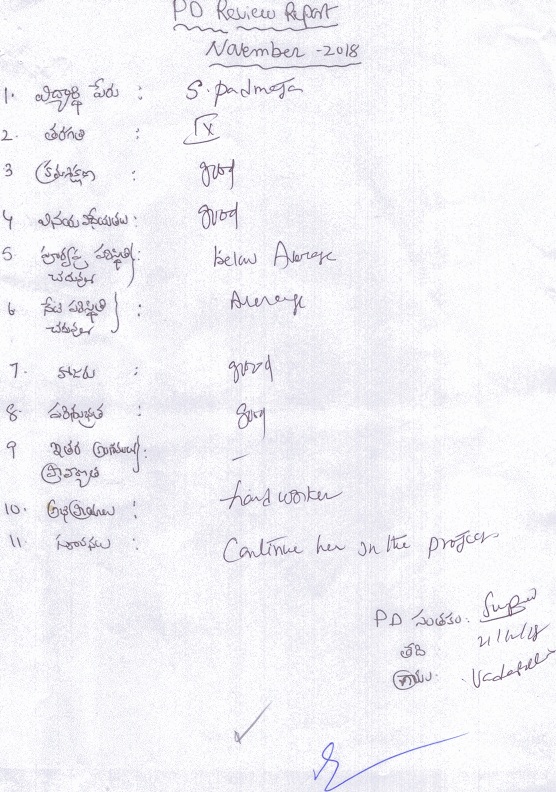 PD Review Report
November - 2018
1. విద్యార్థి పేరు : S. padmaja
2. తరగతి : IX
3 క్రమశిక్షణ : good
4 వినయ విధేయతలు : good
5 పూర్వపు పరిస్థితి : below Average
చదువులు
6 నేటి పరిస్థితి : Average
చదువులు
7. హాజరు : good
8. పరిశుభ్రత : good
9 ఇతర : -
ప్రావీణ్యత
10. అభిప్రాయాలు : hard worker
11. సూచనలు : Continue her in the project
PD సంతకం:
తేది 21/11/18